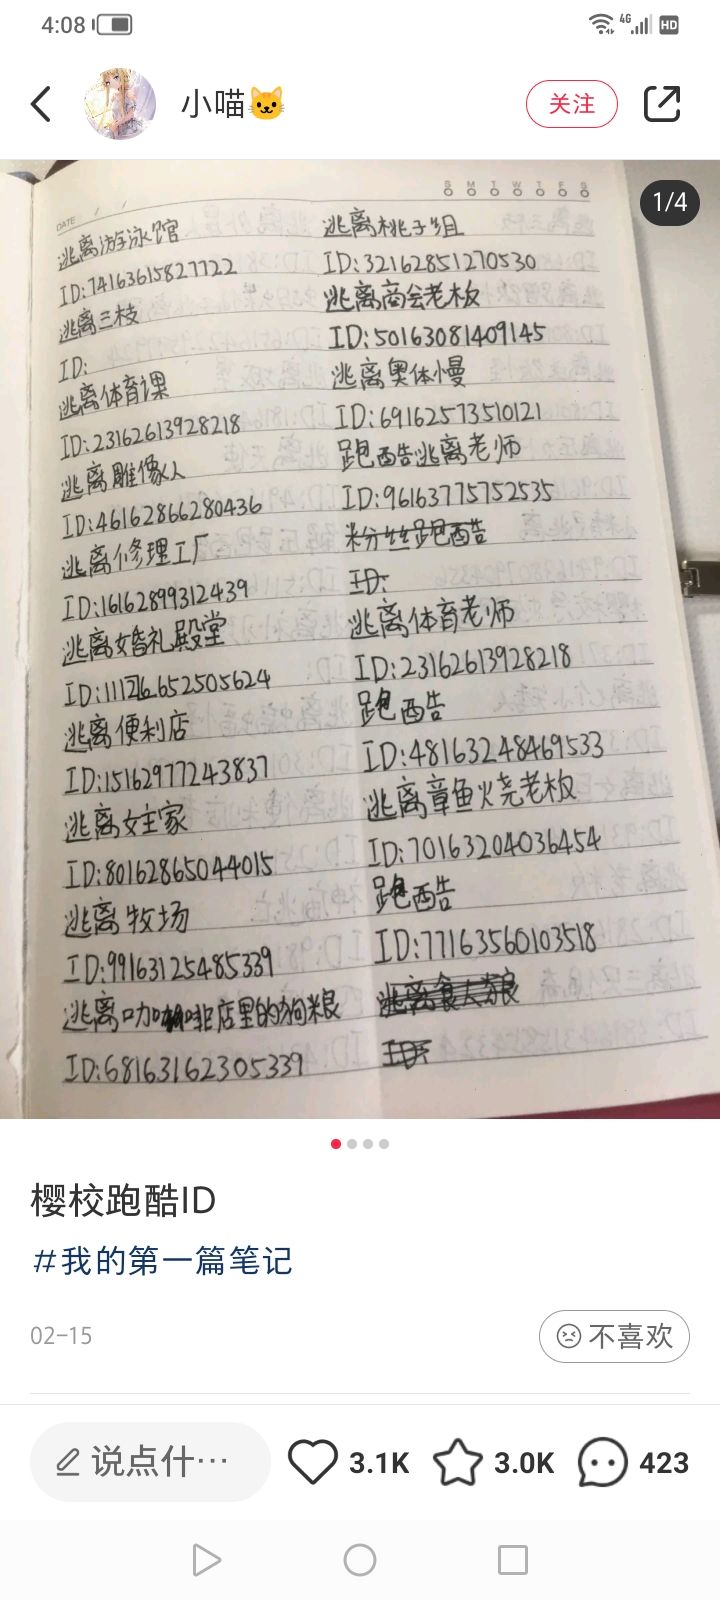 4:08
4G
HD
小喵🐱
关注
1/4
S M T W T F S
DATE
逃离游泳馆
ID:74163615827722
逃离三枝
ID:
逃离体育课
ID:23162613928218
逃离雕像人
ID:46162866280436
逃离修理工厂
ID:16162899312439
逃离婚礼殿堂
逃离便利店
ID:15162977243837
逃离女主家
ID:80162865044015
逃离牧场
ID:99163125485339
逃离咖啡店里的狗粮
ID:68163162305339
逃离桃子组
ID:32162851270530
逃离商会老板
ID:50163081409145
逃离奥体慢
ID:69162573510121
跑酷逃离老师
ID:96163775752535
粉丝跑酷
ID:
逃离体育老师
ID:23162613928218
跑酷
ID:48163248469533
逃离章鱼火烧老板
ID:70163204036454
跑酷
ID:77163560103518
樱校跑酷ID
#我的第一篇笔记
02-15
不喜欢
说点什…
3.1K
3.0K
423